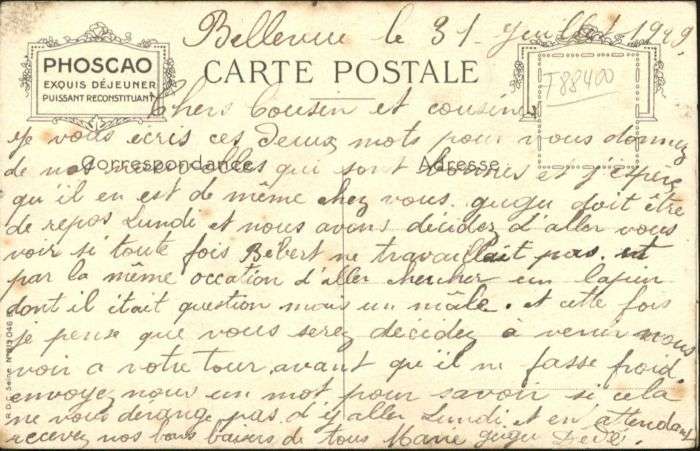 Bellevue le 31 Juillet 1929
PHOSCAO
EXQUIS DÉJEUNER
PUISSANT RECONSTITUANT
CARTE POSTALE
T88400
Chers Cousin et cousine
je vous écris ces deux mots pour vous donnez
Correspondance
Adresse
de nos nouvelles qui sont bonnes et j'espère
qu'il en est de même chez vous. gugu doit être
de repos Lundi et nous avons décidez d'aller vous
voir si toute fois Bébert ne travaillait pas. et
par la même occation d'aller chercher un lapin
dont il était question mais un mâle. et cette fois
je pense que vous serez décidez à venir nous
voir a votre tour avant qu'il ne fasse froid.
envoyez nous un mot pour savoir si cela
ne vous dérange pas d'y aller Lundi et en attendant
recevez nos bons baisers de tous Marie gugu Dédé